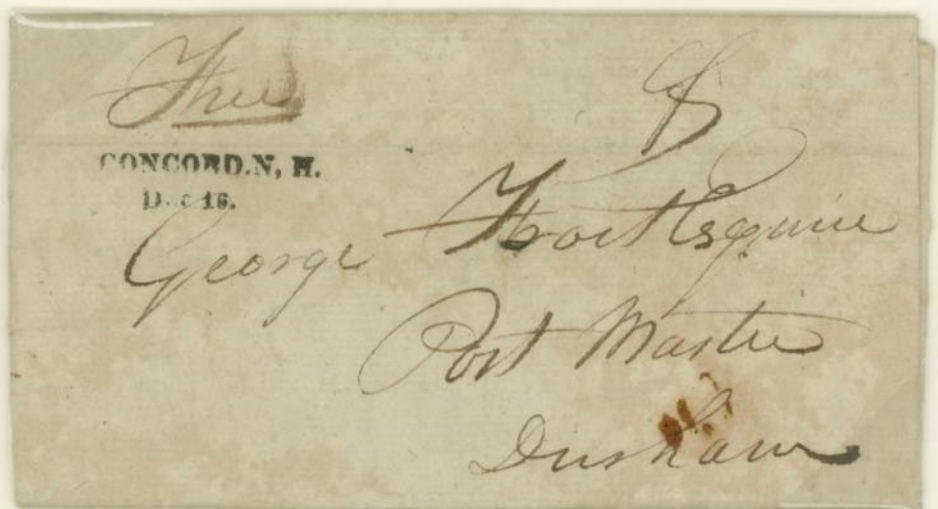 Free
CONCORD.N, H.
Dec 16.
George Frost Esquire
Post Master
Durham